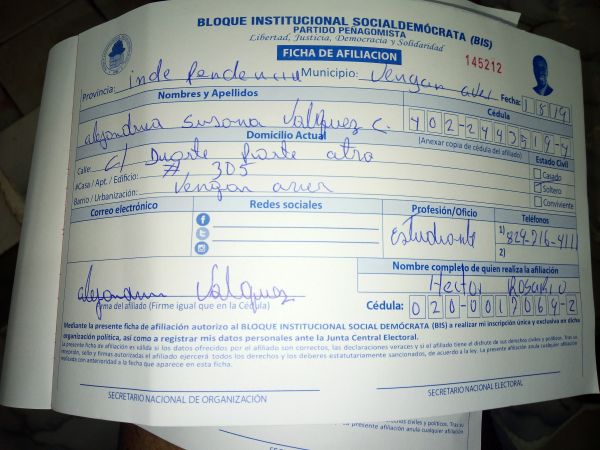 BLOQUE INSTITUCIONAL SOCIALDEMÓCRATA (BIS)
PARTIDO PEÑAGOMISTA
Libertad, Justicia, Democracia y Solidaridad
FICHA DE AFILIACION
145212
Provincia: independencia Municipio: Vengan aver Fecha: 1 8 19
Nombres y Apellidos
Cédula
alejandrina Susana Valquez C.
402-2443519-4
(Anexar copia de cédula del afiliado)
Domicilio Actual
Estado Civil
Calle: c/ Duarte parte atra
Casado
#Casa / Apt. / Edificio: # 305
Soltero
Barrio / Urbanización: Vengan aver
Conviviente
Correo electrónico
Redes sociales
Profesión/Oficio
Teléfonos
Estudiante
1) 829-216-4111
2)
Nombre completo de quien realiza la afiliación
Hector Rosario
alejandrina Valquez
Firma del afiliado (Firme igual que en la Cédula)
Cédula: 020-0017069-2
Mediante la presente ficha de afiliación autorizo al BLOQUE INSTITUCIONAL SOCIAL DEMÓCRATA (BIS) a realizar mi inscripción única y exclusiva en dicha
organización política, así como a registrar mis datos personales ante la Junta Central Electoral.
La presente ficha de afiliación es válida si los datos ofrecidos por el afiliado son correctos, las declaraciones veraces y si el afiliado tiene el disfrute de sus derechos civiles y políticos. Tras su
recepción, sello y firmas autorizadas el afiliado ejercerá todos los derechos y los deberes estatutariamente sancionados, de acuerdo a la ley. La presente afiliación anula cualquier afiliación
realizada con anterioridad a la fecha que aparece en esta ficha.
SECRETARIO NACIONAL DE ORGANIZACIÓN
SECRETARIO NACIONAL ELECTORAL